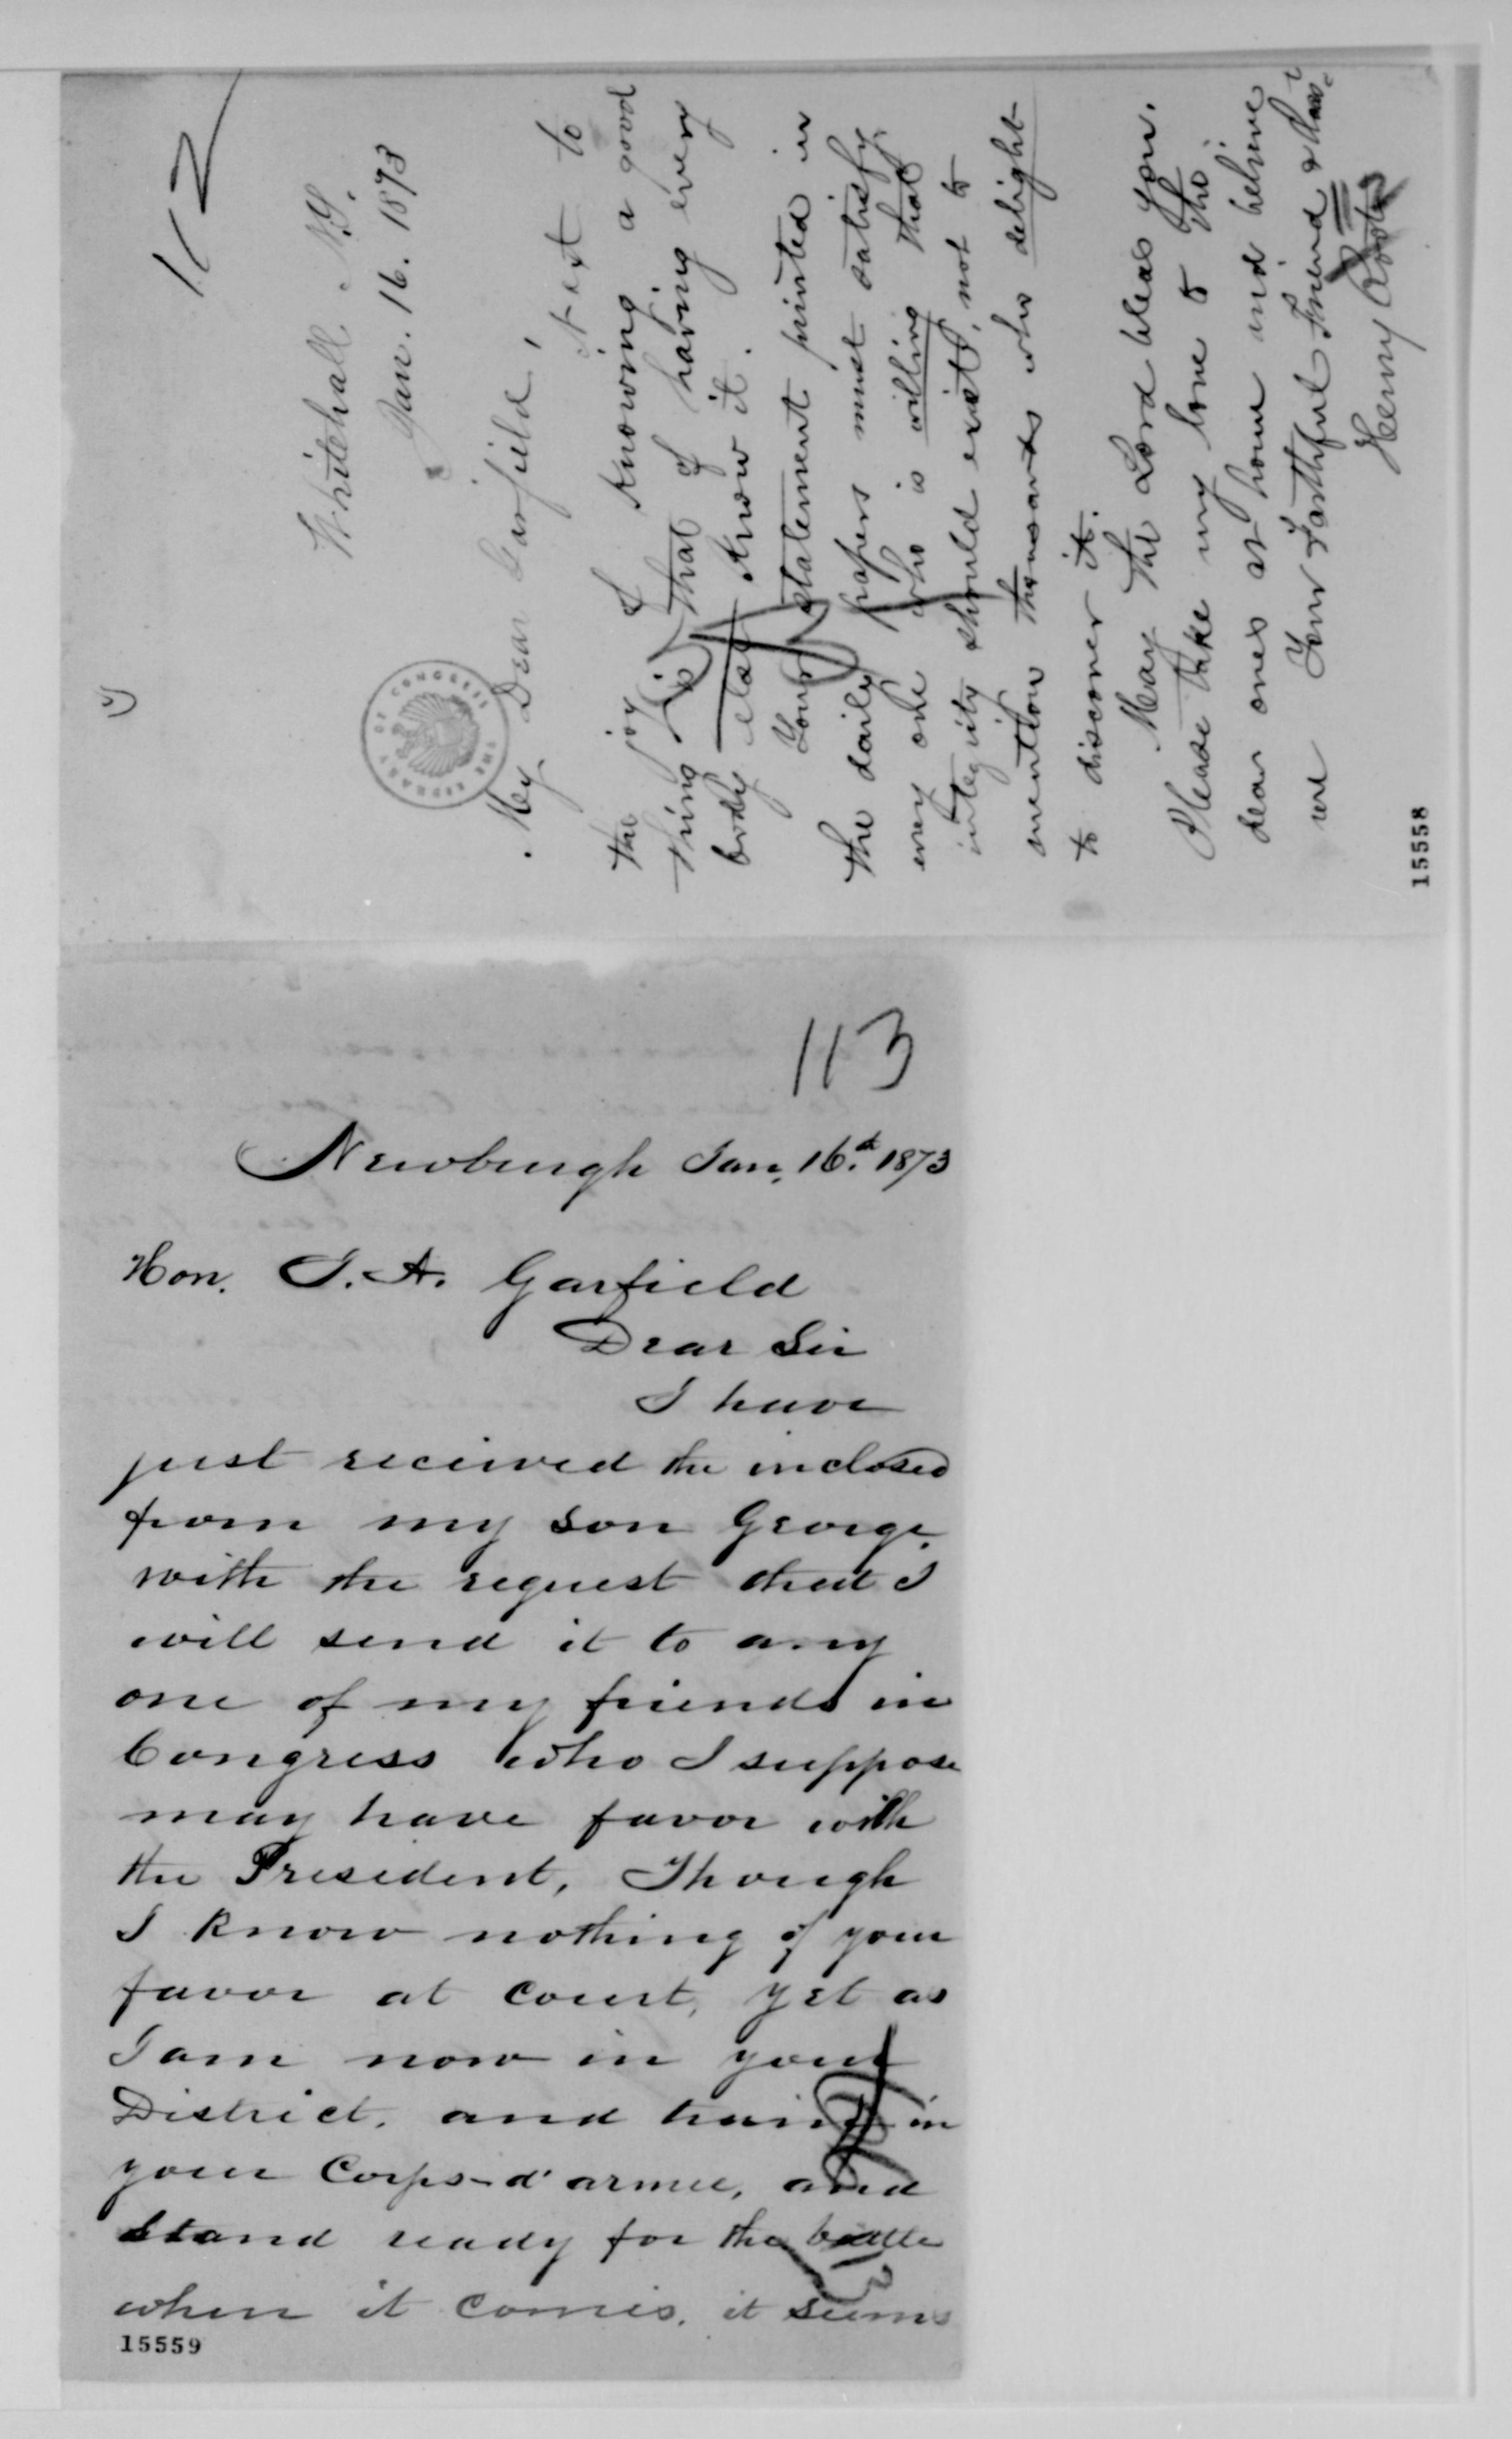 112
Whitehall N.Y.
Jan. 16. 1873
My Dear Garfield,
Next to
the joy of knowing a good
thing is that of having every
body else know it.
Your statement printed in
the daily papers must satisfy
every one who is willing that
integrity should exist, not to
mention thousands who delight
to discover it.
May the Lord bless you.
Please take my love to the
dear ones at home and believe
me Your Faithful Friend &
Henry
15558
LIBRARY OF CONGRESS
113
Newburgh Jan. 16th 1873
Hon. J. A. Garfield
Dear Sir
I have
just received the inclosed
from my son George,
with the request that I
will send it to any
one of my friends in
Congress who I suppose
may have favor with
the President, Though
I know nothing of your
favor at court, yet as
I am now in your
District, and train in
your Corps-d'armee, and
stand ready for the battle
when it comes, it seems
15559